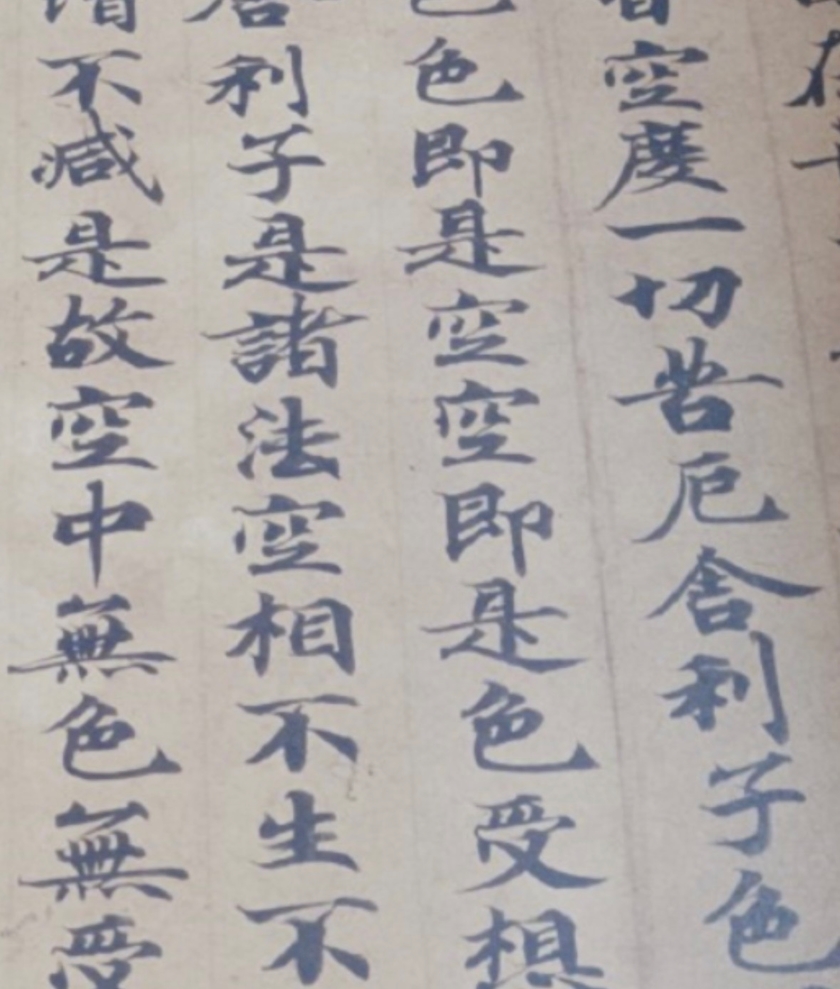 皆空度一切苦厄舍利子色
色色即是空空即是色受想
舍利子是諸法空相不生不
增不減是故空中無色無受